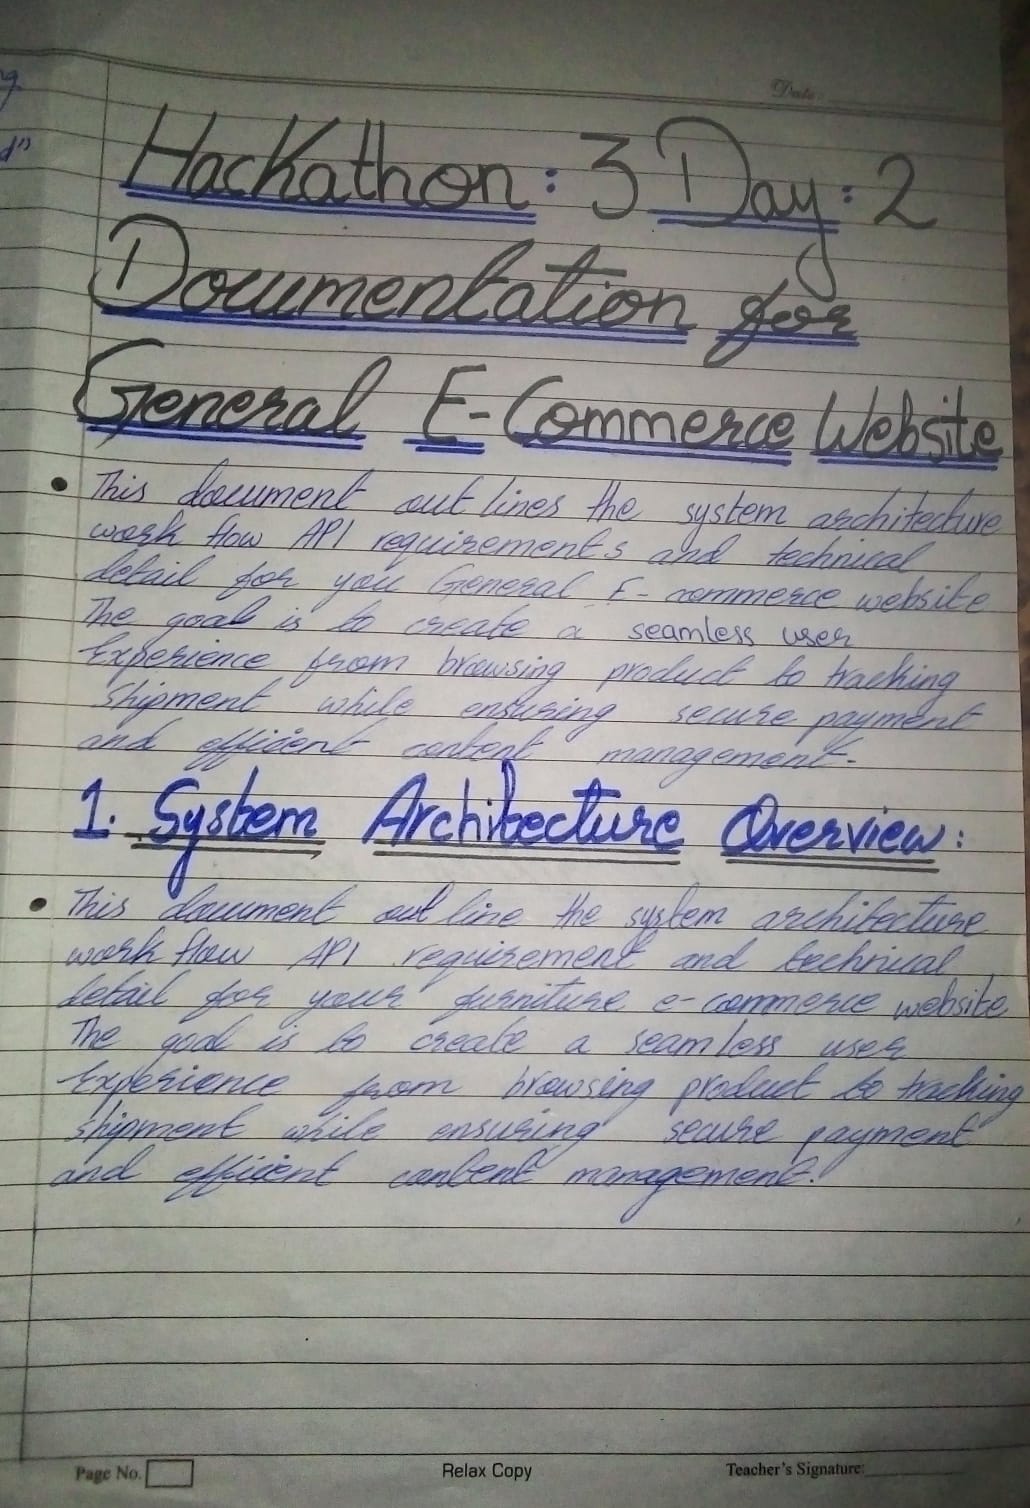 ng
d"
Date:
Hackathon: 3 Day: 2
Documentation for
General E-Commerce Website
• This document out lines the system architecture
work flow API requirements and technical
detail for you General E-commerce website
The goal is to create a seamless user
Experience from browsing product to tracking
shipment while ensuring secure payment
and efficent content management.
1. System Architecture Overview:
• This document out line the system architecture
work flow API requirement and technical
detail for your furniture e-commerce website
The goal is to create a seamless user
Experience from browsing product to tracking
shipment while ensuring secure payment
and efficent content management.
Page No.
Relax Copy
Teacher's Signature: